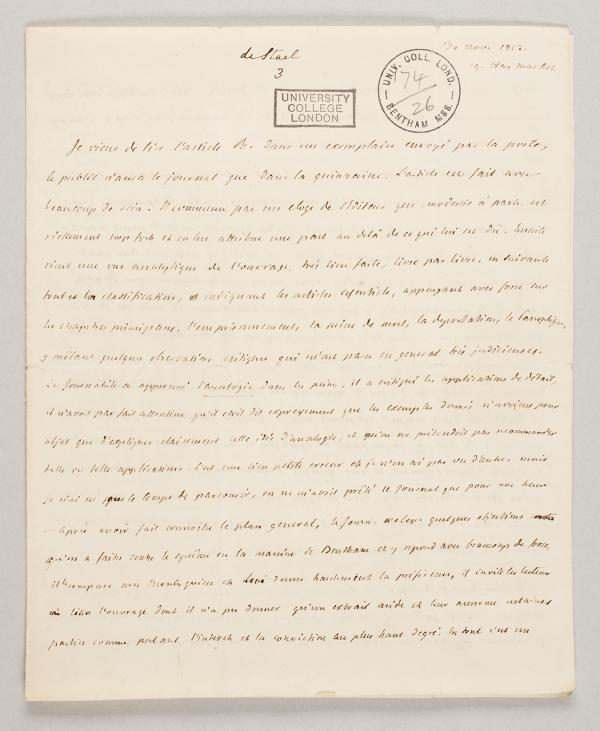 de Stael
3
30 Nov. 1813.
19. Hay Market
UNIV. COLL. LOND.
174
26
BENTHAM MSS.
UNIVERSITY
COLLEGE
LONDON
Je viens de lire l'article B. dans un exemplaire envoyé par la poste,
le public n'aura le journal que dans la quinzaine. L'article est fait avec
beaucoup de soin. Il commence par un éloge de l'éditeur qui, modestie à part, est
réellement trop fort et on lui attribue une part au delà de ce qui lui est dû. Ensuite
vient une vue analytique de l'ouvrage, très bien faite, livre par livre, en suivant
toute la classification, et indiquant les articles essentiels, appuyant avec force sur
les chapitres principaux, l'emprisonnement, la peine de mort, la déportation, le Panoptique,
y mêlant quelques observations critiques qui m'ont paru en general très judicieuses.
Le Journaliste a approuvé l'analogie dans les peines, il a critiqué les applications de détail,
il n'avoit pas fait attention qu'il étoit dit expressement que les exemples donnés n'avoient pour
objet que d'expliquer clairement cette idée d'analogie, et qu'on ne prétendoit pas recommander
telle ou telle application. C'est une bien petite erreur et je n'en ai pas vu d'autres mais
je n'ai eu que le temps de parcourir, on ne m'avoit prêté le Journal que pour une heure
— après avoir fait connoitre le plan general, le Journ. relève quelques objections
qu'on a faites contre le système ou la manière de Bentham et y repond avec beaucoup de force,
il le compare avec Montesquieu et lui donne hautement la préférence, il invite les lecteurs
à lire l'ouvrage dont il n'a pu donner qu'un extrait aride et leur annonce certaines
parties comme portant l'interêt et la conviction au plus haut degré. En tout c'est un